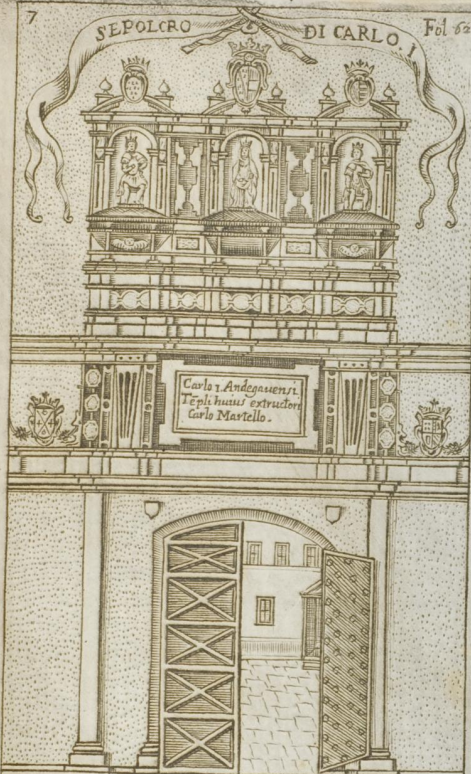 7
SEPOLCRO DI CARLO. I
Fol 62
Carlo 1. Andegauensi.
Tẽpli huius extructori
Carlo Martello.